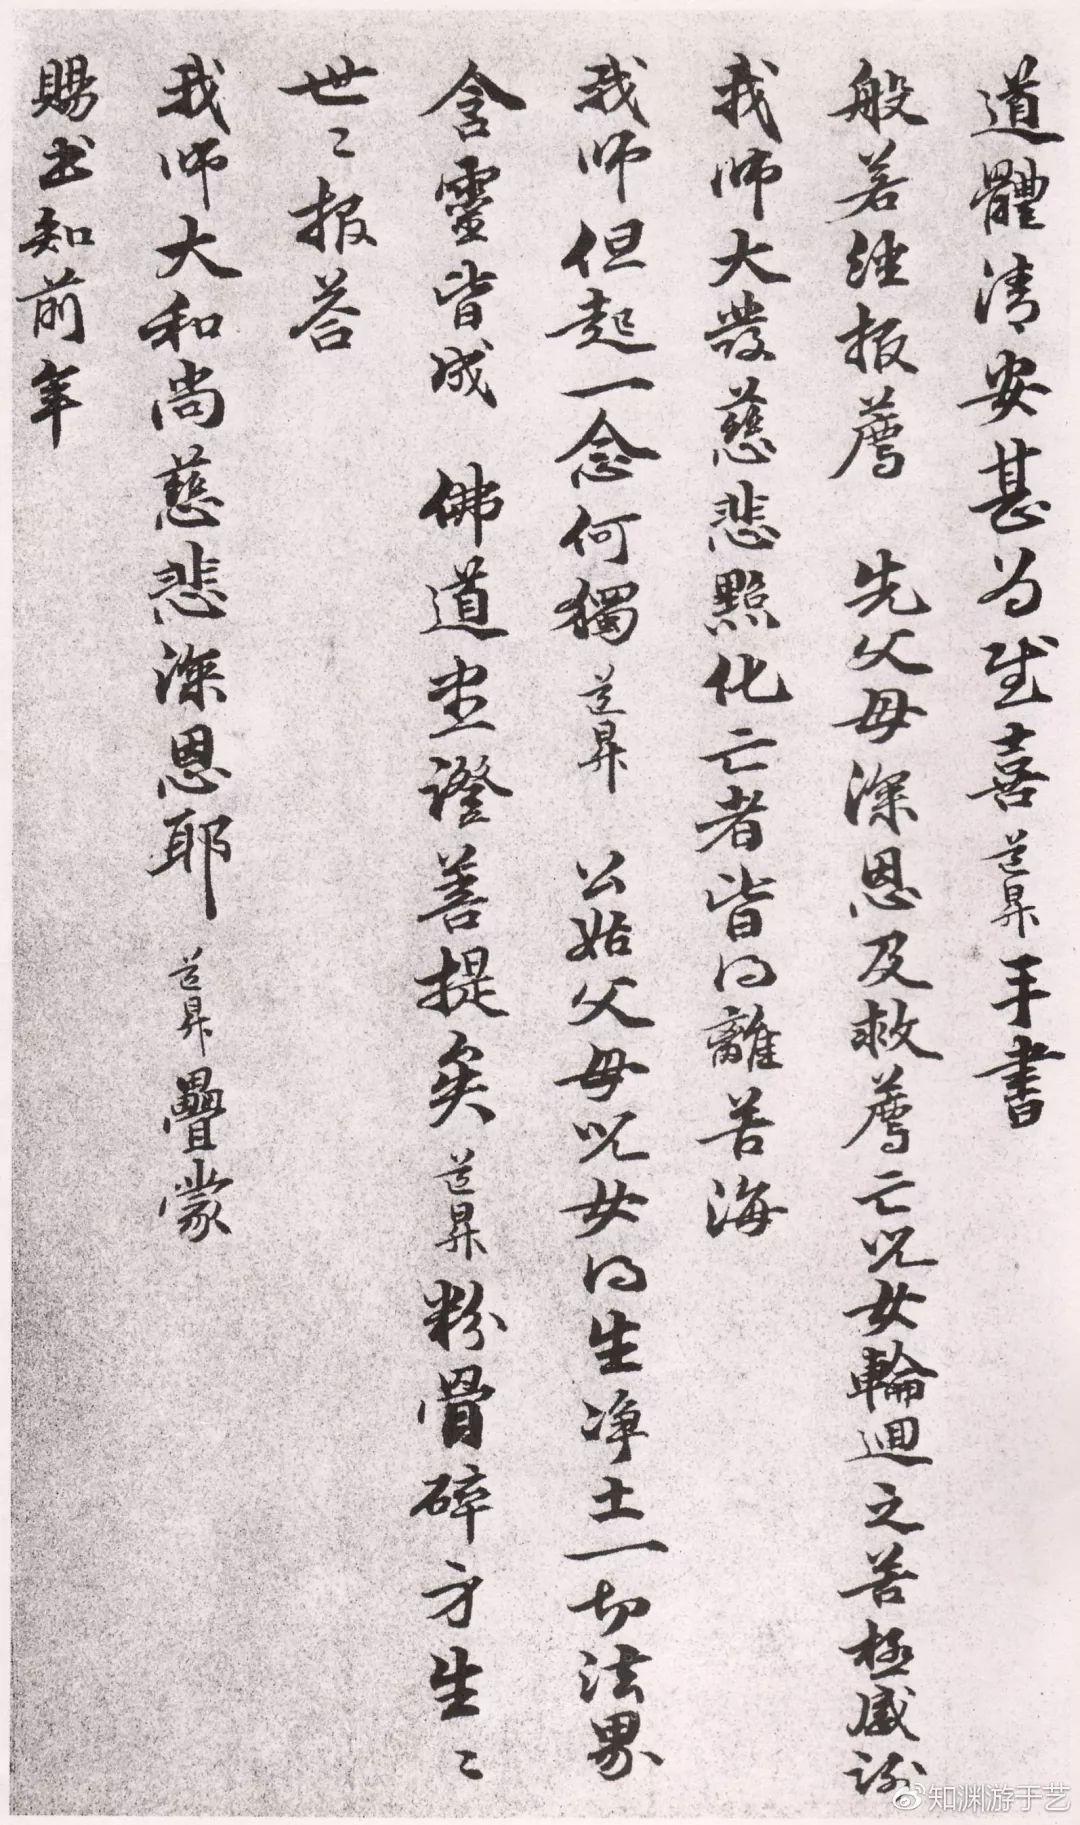 道體清安甚为感喜道昇手書
般若經报薦 先父母深恩及救薦亡児女輪迴之苦極感谢
我师大發慈悲點化亡者皆得離苦海
我师但起一念何獨道昇 公姑父母児女得生净土一切法界
含靈皆成 佛道坐證菩提矣道昇粉骨碎身生〻
世〻报答
我师大和尚慈悲深恩耶道昇疊蒙
賜书知前年
知渊游于艺